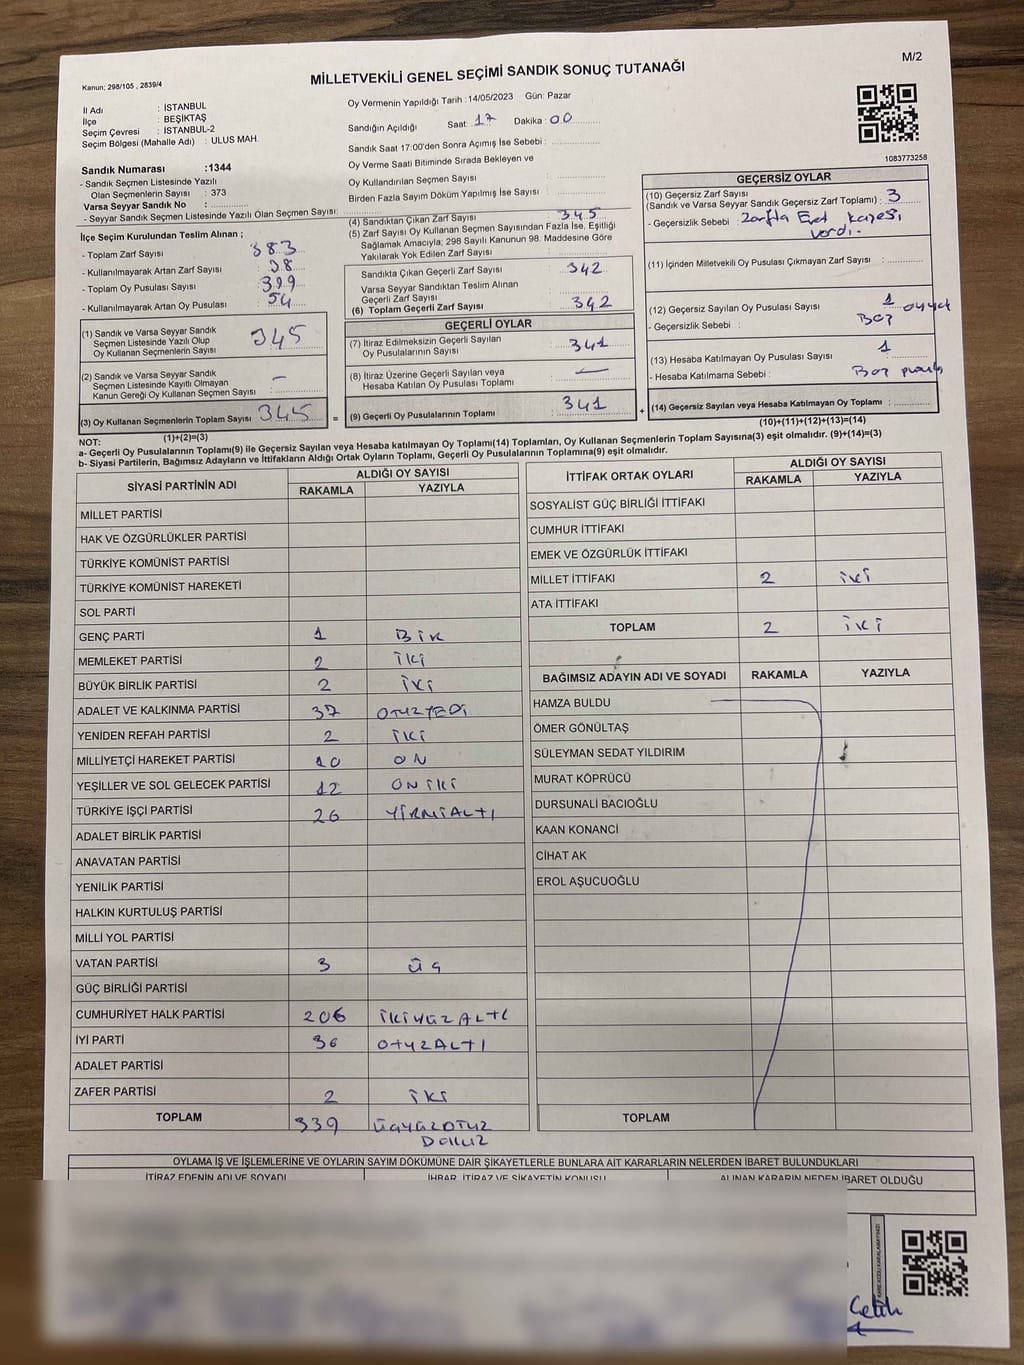 Kanun: 298/105 , 2839/4
MİLLETVEKİLİ GENEL SEÇİMİ SANDIK SONUÇ TUTANAĞI
M/2
İl Adı : İSTANBUL
İlçe : BEŞİKTAŞ
Seçim Çevresi : İSTANBUL-2
Seçim Bölgesi (Mahalle Adı) : ULUS MAH.
Oy Vermenin Yapıldığı Tarih :14/05/2023 Gün: Pazar
Sandığın Açıldığı Saat: 17 Dakika: 00
Sandık Saat 17:00'den Sonra Açımış İse Sebebi :
Oy Verme Saati Bitiminde Sırada Bekleyen ve
Oy Kullandırılan Seçmen Sayısı :
Birden Fazla Sayım Döküm Yapılmış İse Sayısı :
1083773258
Sandık Numarası :1344
- Sandık Seçmen Listesinde Yazılı
Olan Seçmenlerin Sayısı : 373
Varsa Seyyar Sandık No :
- Seyyar Sandık Seçmen Listesinde Yazılı Olan Seçmen Sayısı:
İlçe Seçim Kurulundan Teslim Alınan ;
- Toplam Zarf Sayısı : 383
- Kullanılmayarak Artan Zarf Sayısı : 38
- Toplam Oy Pusulası Sayısı : 399
- Kullanılmayarak Artan Oy Pusulası : 54
(1) Sandık ve Varsa Seyyar Sandık
Seçmen Listesinde Yazılı Olup
Oy Kullanan Seçmenlerin Sayısı : 345
(2) Sandık ve Varsa Seyyar Sandık
Seçmen Listesinde Kayıtlı Olmayan
Kanun Gereği Oy Kullanan Seçmen Sayısı : -
(3) Oy Kullanan Seçmenlerin Toplam Sayısı : 345 =
(1)+(2)=(3)
(4) Sandıktan Çıkan Zarf Sayısı : 345
(5) Zarf Sayısı Oy Kullanan Seçmen Sayısından Fazla İse, Eşitliği
Sağlamak Amacıyla; 298 Sayılı Kanunun 98. Maddesine Göre
Yakılarak Yok Edilen Zarf Sayısı :
Sandıkta Çıkan Geçerli Zarf Sayısı : 342
Varsa Seyyar Sandıktan Teslim Alınan
Geçerli Zarf Sayısı :
(6) Toplam Geçerli Zarf Sayısı : 342
GEÇERLİ OYLAR
(7) İtiraz Edilmeksizin Geçerli Sayılan
Oy Pusulalarının Sayısı : 341
(8) İtiraz Üzerine Geçerli Sayılan veya
Hesaba Katılan Oy Pusulası Toplamı : -
(9) Geçerli Oy Pusulalarının Toplamı : 341 +
GEÇERSİZ OYLAR
(10) Geçersiz Zarf Sayısı
(Sandık ve Varsa Seyyar Sandık Geçersiz Zarf Toplamı) : 3
- Geçersizlik Sebebi : Zarfta Evet kaşesi
vardı.
(11) İçinden Milletvekili Oy Pusulası Çıkmayan Zarf Sayısı :
(12) Geçersiz Sayılan Oy Pusulası Sayısı : 1
- Geçersizlik Sebebi : Boş
(13) Hesaba Katılmayan Oy Pusulası Sayısı : 1
- Hesaba Katılmama Sebebi : Boş
(14) Geçersiz Sayılan veya Hesaba Katılmayan Oy Toplamı :
(10)+(11)+(12)+(13)=(14)
NOT:
a- Geçerli Oy Pusulalarının Toplamı(9) ile Geçersiz Sayılan veya Hesaba katılmayan Oy Toplamı(14) Toplamları, Oy Kullanan Seçmenlerin Toplam Sayısına(3) eşit olmalıdır. (9)+(14)=(3)
b- Siyasi Partilerin, Bağımsız Adayların ve İttifakların Aldığı Ortak Oyların Toplamı, Geçerli Oy Pusulalarının Toplamına(9) eşit olmalıdır.
SİYASİ PARTİNİN ADI ALDIĞI OY SAYISI
RAKAMLA YAZIYLA
MİLLET PARTİSİ
HAK VE ÖZGÜRLÜKLER PARTİSİ
TÜRKİYE KOMÜNİST PARTİSİ
TÜRKİYE KOMÜNİST HAREKETİ
SOL PARTİ
GENÇ PARTİ 1 BİR
MEMLEKET PARTİSİ 2 İKİ
BÜYÜK BİRLİK PARTİSİ 2 İKİ
ADALET VE KALKINMA PARTİSİ 37 OTUZYEDİ
YENİDEN REFAH PARTİSİ 2 İKİ
MİLLİYETÇİ HAREKET PARTİSİ 10 ON
YEŞİLLER VE SOL GELECEK PARTİSİ 12 ONİKİ
TÜRKİYE İŞÇİ PARTİSİ 26 YİRMİALTI
ADALET BİRLİK PARTİSİ
ANAVATAN PARTİSİ
YENİLİK PARTİSİ
HALKIN KURTULUŞ PARTİSİ
MİLLİ YOL PARTİSİ
VATAN PARTİSİ 3 ÜÇ
GÜÇ BİRLİĞİ PARTİSİ
CUMHURİYET HALK PARTİSİ 206 İKİYÜZALTI
İYİ PARTİ 36 OTUZALTI
ADALET PARTİSİ
ZAFER PARTİSİ 2 İKİ
TOPLAM 339 ÜÇYÜZOTUZ
DOKUZ
İTTİFAK ORTAK OYLARI ALDIĞI OY SAYISI
RAKAMLA YAZIYLA
SOSYALİST GÜÇ BİRLİĞİ İTTİFAKI
CUMHUR İTTİFAKI
EMEK VE ÖZGÜRLÜK İTTİFAKI
MİLLET İTTİFAKI 2 İKİ
ATA İTTİFAKI
TOPLAM 2 İKİ
BAĞIMSIZ ADAYIN ADI VE SOYADI RAKAMLA YAZIYLA
HAMZA BULDU
ÖMER GÖNÜLTAŞ
SÜLEYMAN SEDAT YILDIRIM
MURAT KÖPRÜCÜ
DURSUNALİ BACIOĞLU
KAAN KONANCİ
CİHAT AK
EROL AŞUCUOĞLU
TOPLAM
OYLAMA İŞ VE İŞLEMLERİNE VE OYLARIN SAYIM DÖKÜMÜNE DAİR ŞİKAYETLERLE BUNLARA AİT KARARLARIN NELERDEN İBARET BULUNDUKLARI
İTİRAZ EDENİN ADI VE SOYADI İHBAR, İTİRAZ VE ŞİKAYETİN KONUSU ALINAN KARARIN NEDEN İBARET OLDUĞU